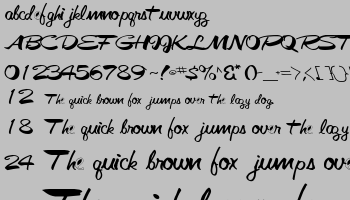 abcdefghijklmnopqrstuvwxyz
ABCDEFGHIJKLMNOPQRST
0123456789~!@#$%^&*()-_+=><,[]{}
12 The quick brown fox jumps over the lazy dog.
18 The quick brown fox jumps over the lazy
24 The quick brown fox jumps ov